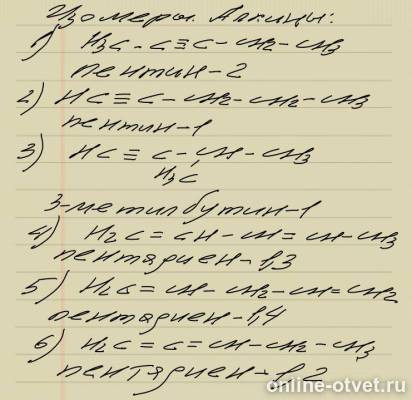 Изомеры. Алкины:
1) H₃C - C ≡ C - CH₂ - CH₃
пентин-2
2) HC ≡ C - CH₂ - CH₂ - CH₃
пентин-1
3) HC ≡ C - CH - CH₃
H₃C
3-метилбутин-1
4) H₂C = CH - CH = CH - CH₃
пентадиен-1,3
5) H₂C = CH - CH₂ - CH = CH₂
пентадиен-1,4
6) H₂C = C = CH - CH₂ - CH₃
пентадиен-1,2
online-otvet.ru